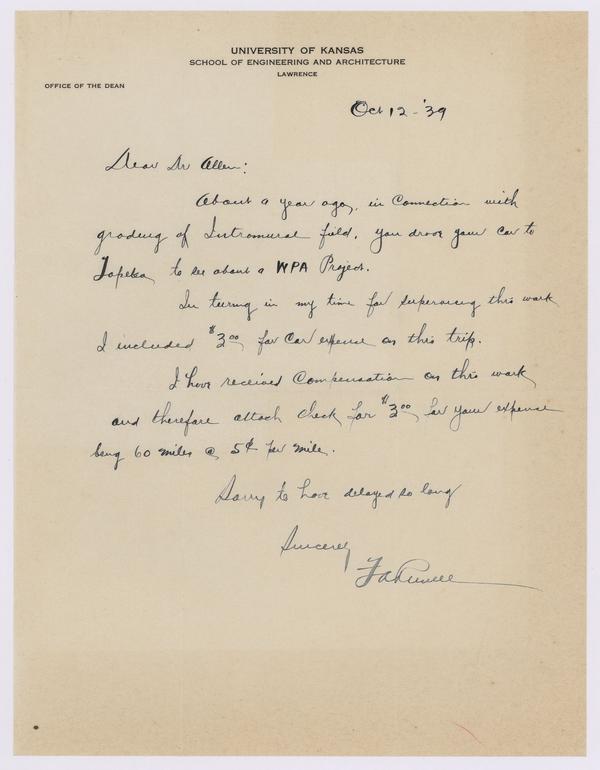 UNIVERSITY OF KANSAS
SCHOOL OF ENGINEERING AND ARCHITECTURE
LAWRENCE
OFFICE OF THE DEAN
Oct 12 - '39
Dear Dr Allen:
About a year ago, in Connection with
grading of Intromural field, you drove your car to
Topeka, to see about a WPA Project.
In turning in my time for supervising this work
I included $3.00 for car expense on this trip.
I have received Compensation on this work
and therefore attach check for $3.00 for your expense
being 60 miles @ 5¢ per mile.
Sorry to have delayed so long
Sincerely
F A Russell